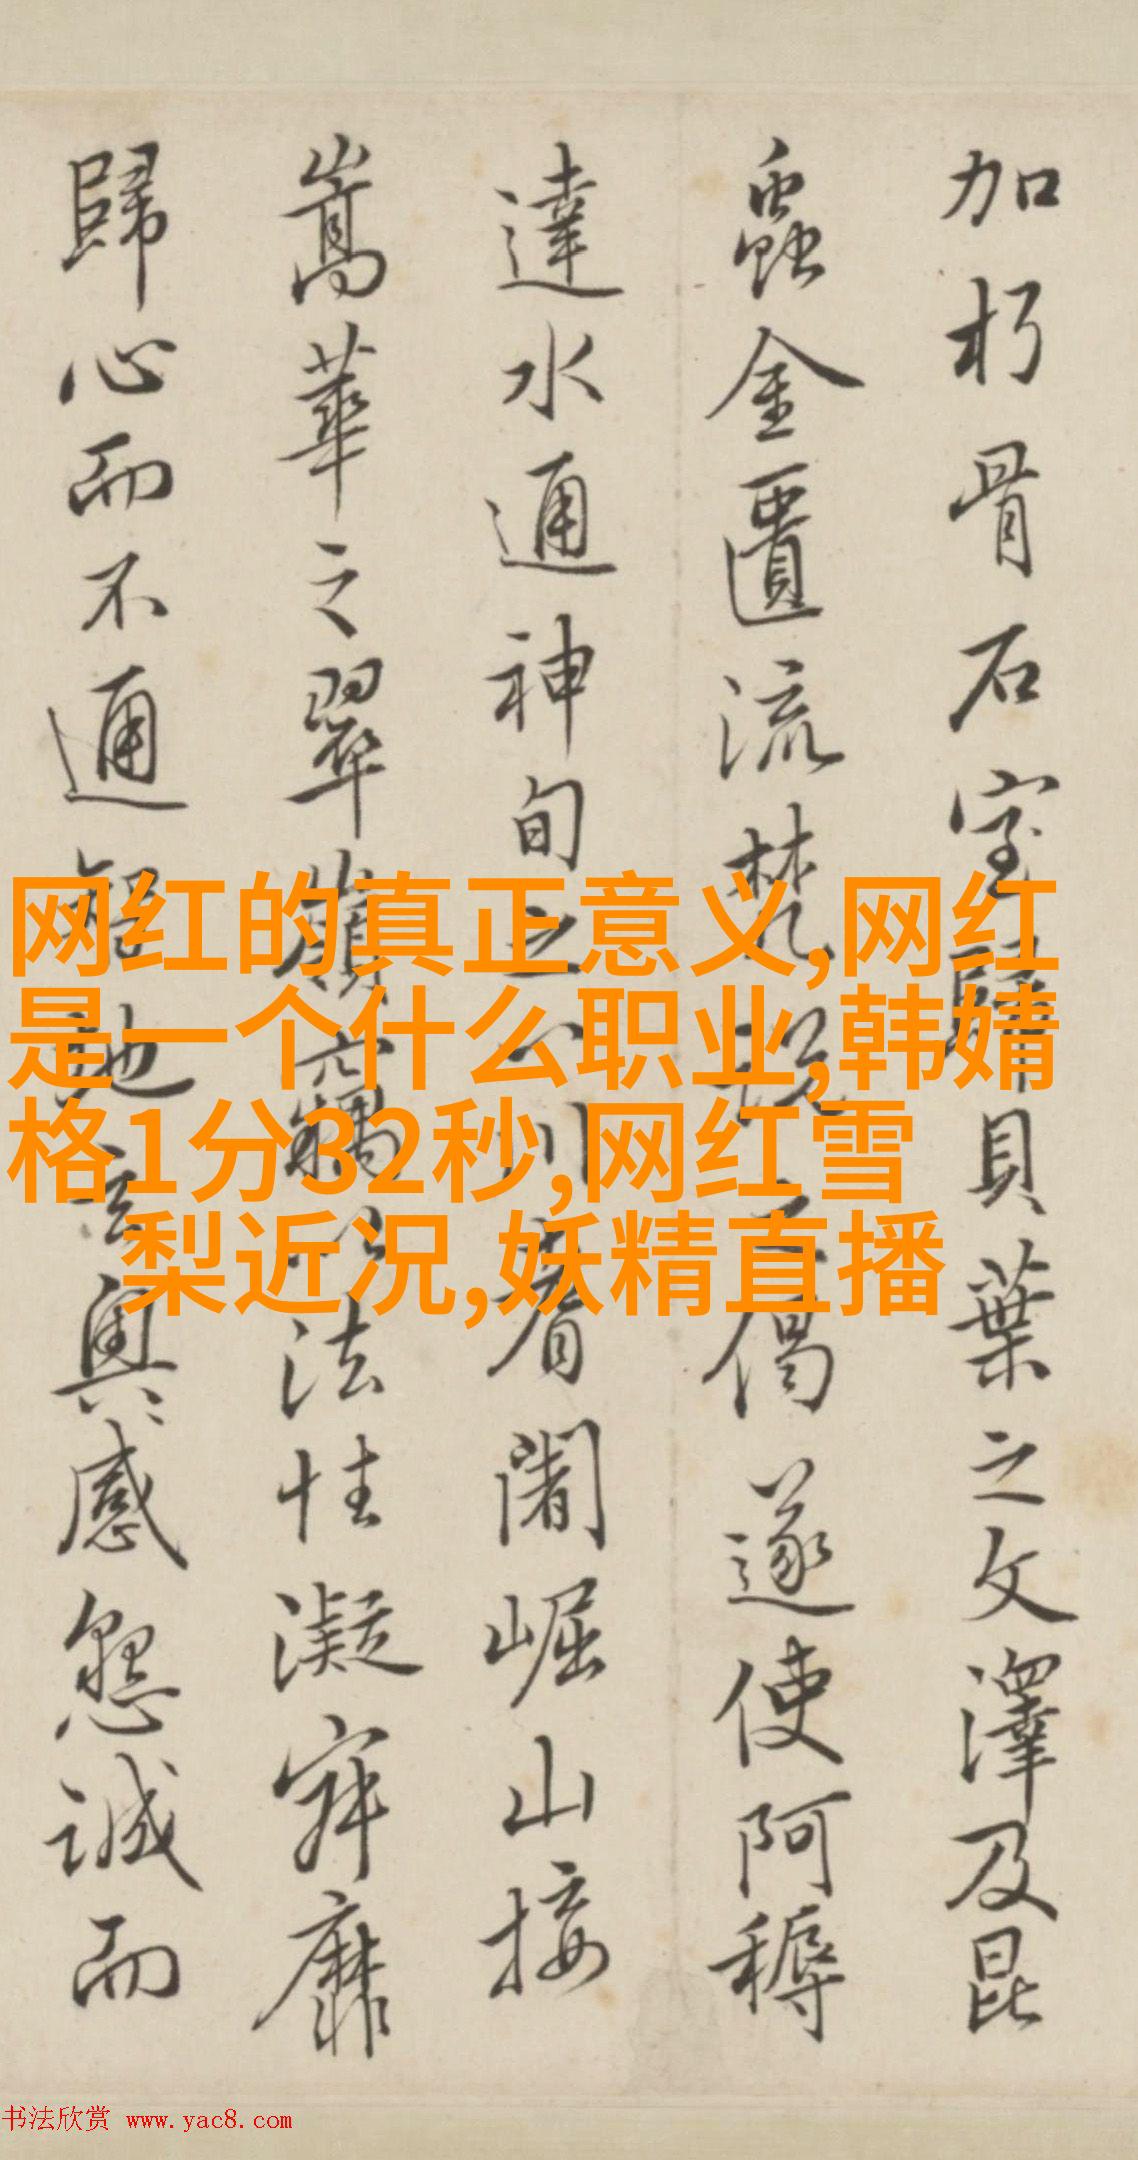 加朽骨石室歸貝葉之文澤及昆
蟲金匱流梵說之偈遂使阿耨
達水通神甸之八川耆闍崛山接
嵩華之翠嶺竊以法性凝寂靡
歸心而不通智地玄奥感懇誠而
网红的真正意义,网红
是一个什么职业,韩婧
格1分32秒,网红雪
梨近况,妖精直播
书法欣赏 www.yac8.com